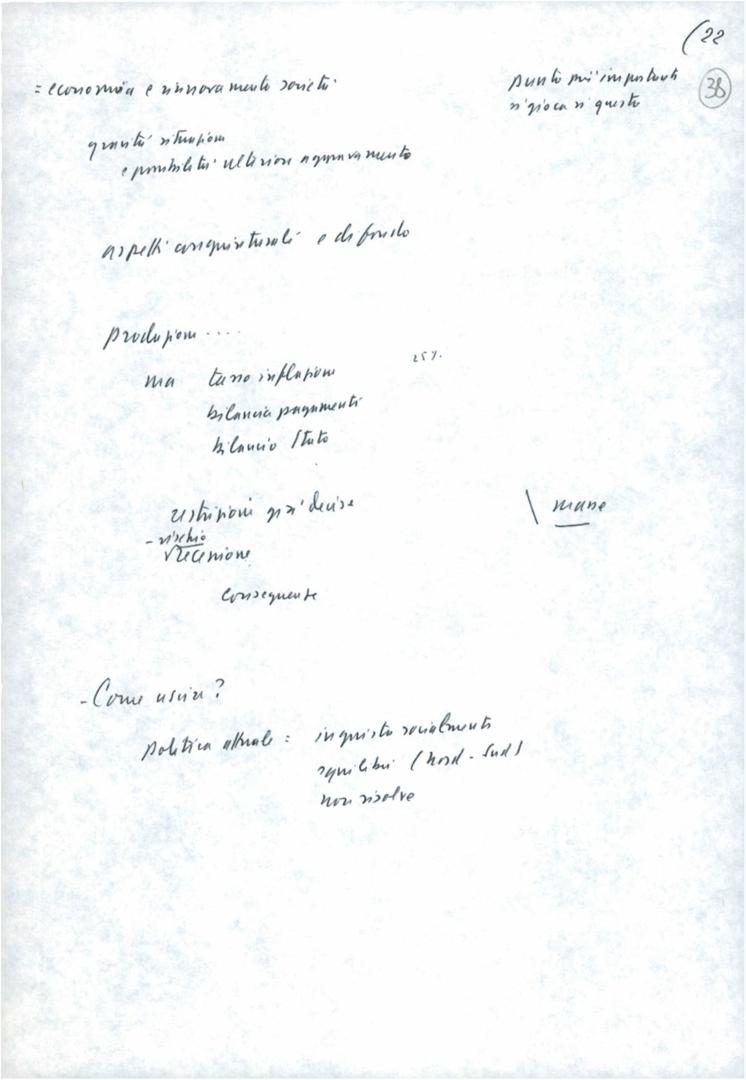 (22
38
= economia e rinnovamento società
punto più importante
si gioca si questo
gravità situazione
e possibilità ulteriore aggravamento
aspetti congiunturali e di fondo
produzione ....
ma tasso inflazione 25%
bilancia pagamenti
bilancio Stato
restrizioni già decise
\ mane
- rischio
recessione
conseguenze
- Come uscire?
politica attuale = ingiusta socialmente
squilibri (Nord - Sud)
non risolve